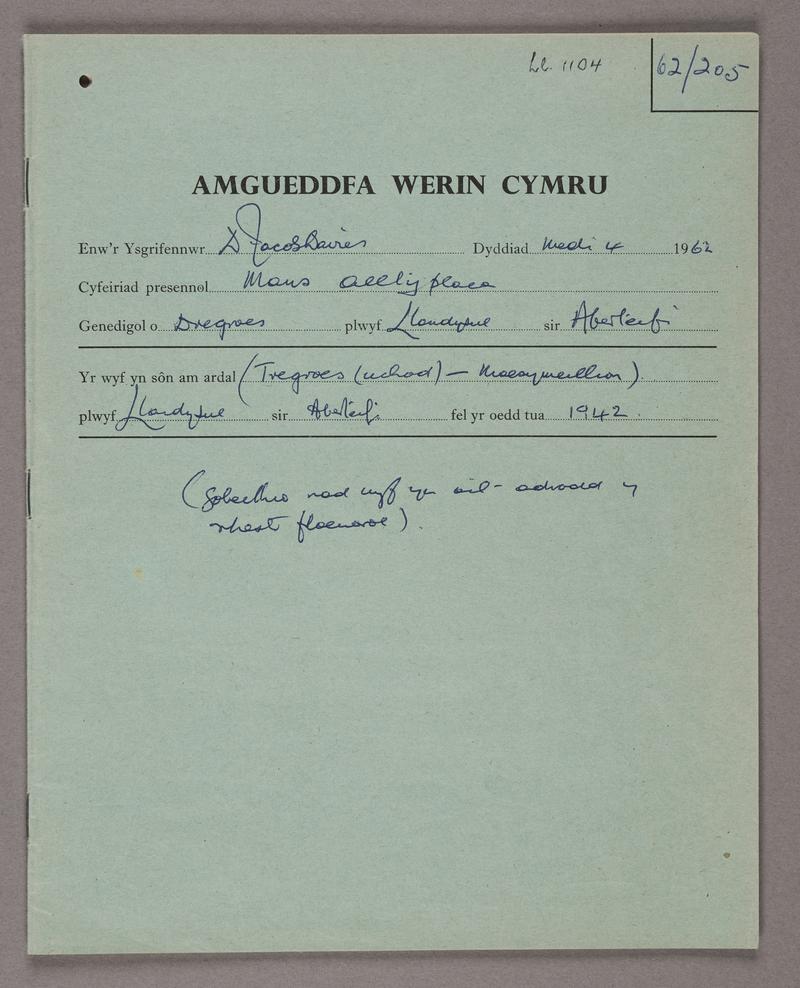 Ll. 1104
62/205
AMGUEDDFA WERIN CYMRU
Enw'r Ysgrifennwr D Jacob Davies Dyddiad Medi 4 1962
Cyfeiriad presennol Mans Alltyplaca
Genedigol o Dregroes plwyf Llandysul sir Aberteifi
Yr wyf yn sôn am ardal (Tregroes (uchod) — Maesymeillion)
plwyf Llandysul sir Aberteifi fel yr oedd tua 1942.
(Gobeithio nad wyf yn ail-adrodd y
rhestr flaenorol).